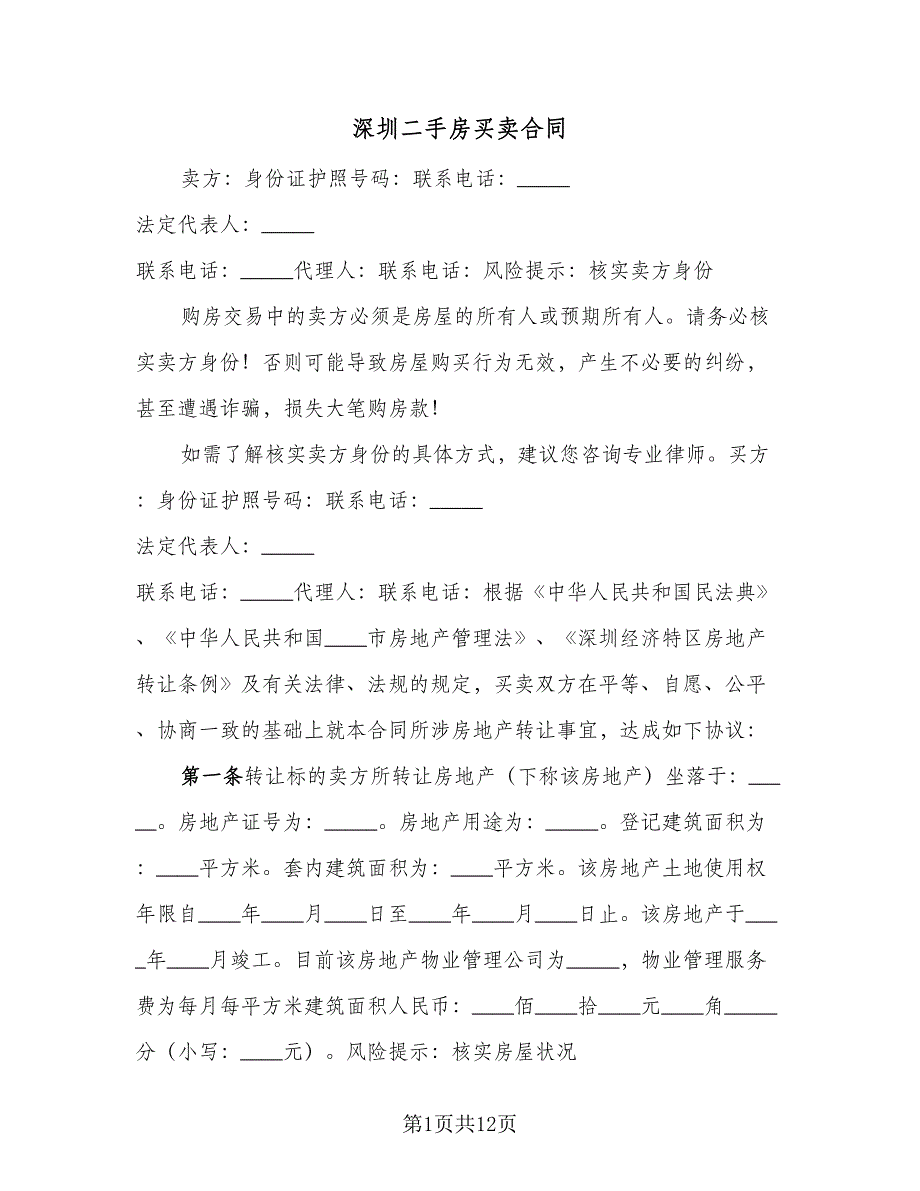 深圳二手房买卖合同
卖方：身份证护照号码：联系电话：_____
法定代表人：_____
联系电话：_____代理人：联系电话：风险提示：核实卖方身份
购房交易中的卖方必须是房屋的所有人或预期所有人。请务必核
实卖方身份！否则可能导致房屋购买行为无效，产生不必要的纠纷，
甚至遭遇诈骗，损失大笔购房款！
如需了解核实卖方身份的具体方式，建议您咨询专业律师。买方
：身份证护照号码：联系电话：_____
法定代表人：_____
联系电话：_____代理人：联系电话：根据《中华人民共和国民法典》
、《中华人民共和国____市房地产管理法》、《深圳经济特区房地产
转让条例》及有关法律、法规的规定，买卖双方在平等、自愿、公平
、协商一致的基础上就本合同所涉房地产转让事宜，达成如下协议：
第一条转让标的卖方所转让房地产（下称该房地产）坐落于：___
__。房地产证号为：_____。房地产用途为：_____。登记建筑面积为
：____平方米。套内建筑面积为：____平方米。该房地产土地使用权
年限自____年____月____日至____年____月____日止。该房地产于___
_年____月竣工。目前该房地产物业管理公司为_____，物业管理服务
费为每月每平方米建筑面积人民币：____佰____拾____元____角_____
分（小写：____元）。风险提示：核实房屋状况
第1页共12页